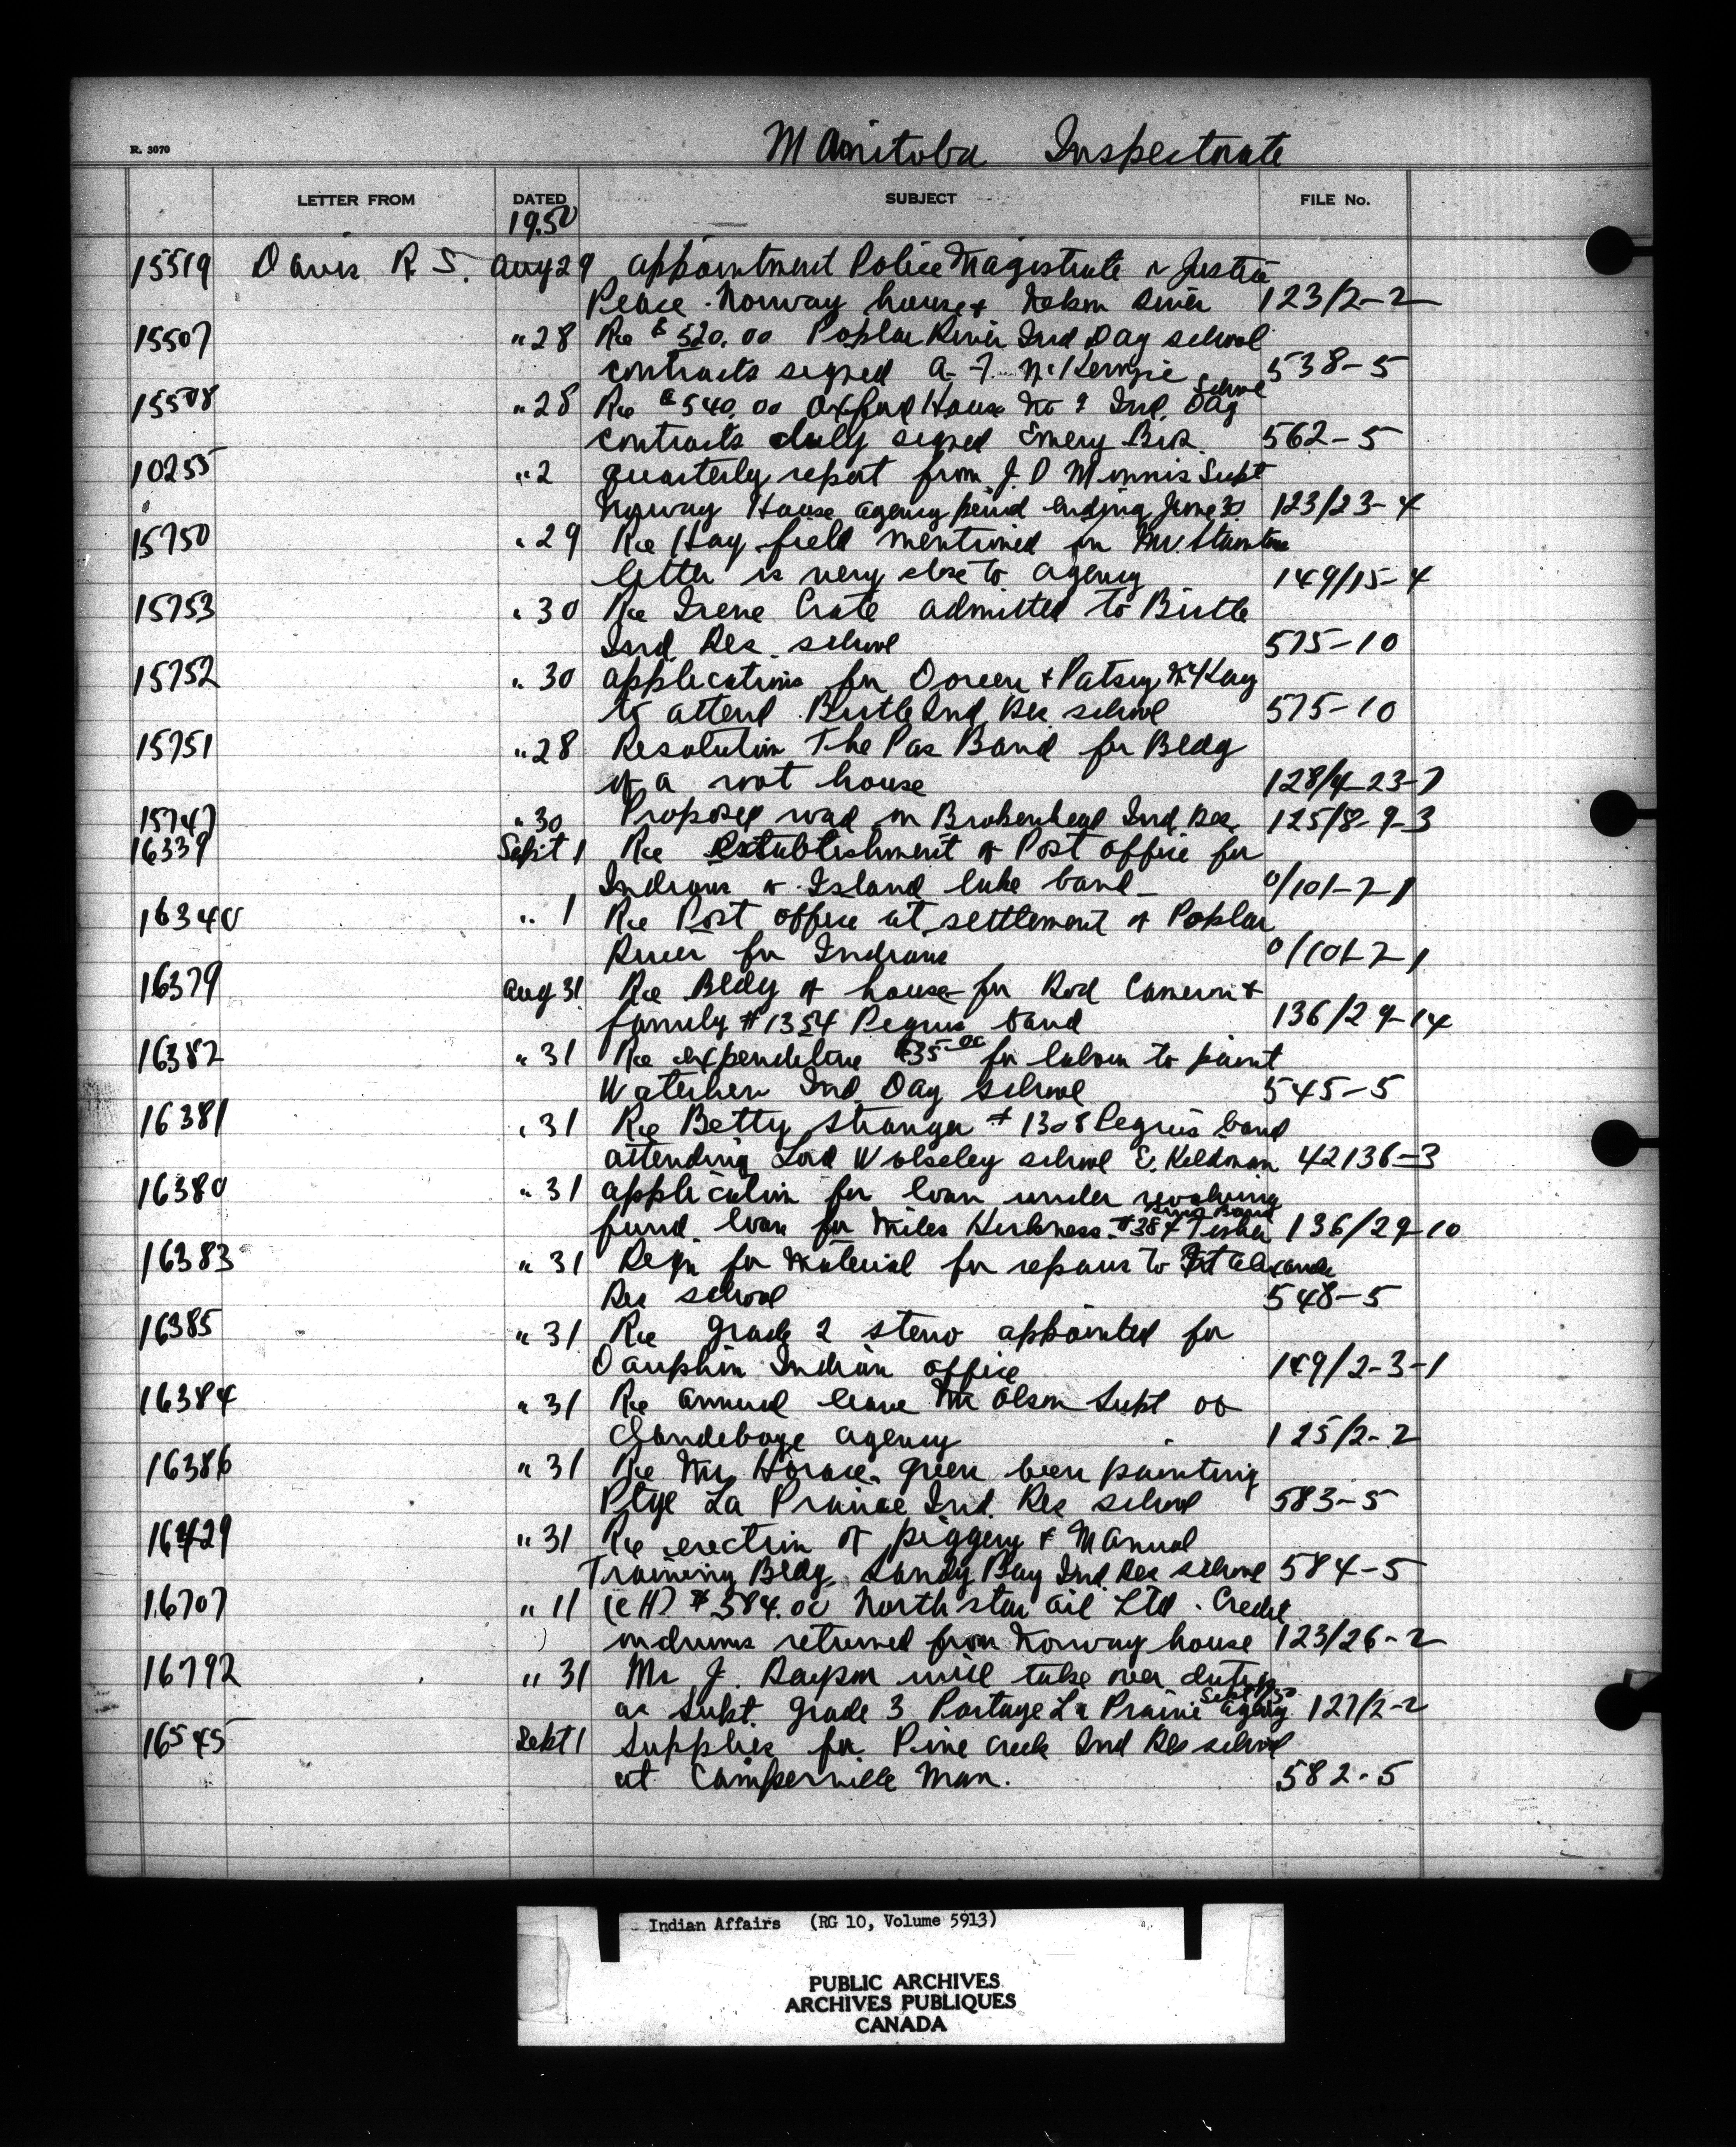 R. 3070
Manitoba Inspectorate
LETTER FROM DATED SUBJECT FILE No.
1950
15519 Davis R S. Aug 29 appointment Police Magistrate & Justice
Peace. Norway house & Nelson River 123/2-2
15507 " 28 Re $520.00 Poplar River Ind Day school
contracts signed A. McKenzie 538-5
15508 " 28 Re $540.00 Oxford House Ind. Day School
contracts duly signed Emery 562-5
10255 " 2 quarterly report from J. D Minnis Supt
Norway House agency period ending June 30. 123/23-4
15750 " 29 Re Hay field mentioned in Mr.
letter is very close to agency 149/15-4
15753 " 30 Re Irene Crate admitted to Birtle
Ind. Res. school 575-10
15752 " 30 applications for Doreen & Patsy McKay
to attend Birtle Ind Res school 575-10
15751 " 28 Resolution The Pas Band for Bldg
of a root house 128/4-23-7
15747 " 30 Proposed road on Brokenhead Ind. Res. 125/8-9-3
16339 Sept 1 Re establishment of Post office for
Indians of Island lake band - 0/101-7-1
16340 " 1 Re Post office at settlement of Poplar
River for Indians 0/101-7-1
16379 Aug 31 Re Bldg of house for Rod Cameron &
family #1354 Peguis band 136/29-14
16382 " 31 Re expenditure $35.00 for labour to paint
Waterhen Ind. Day school 545-5
16381 " 31 Re Betty Stranger #1308 Peguis band
attending Lord Wolseley school E. Kildonan 42136-3
16380 " 31 application for loan under revolving
fund. loan for Miles Harkness. #384 Fisher River Band 136/29-10
16383 " 31 Reqn for Material for repairs to Ft Alexander
Res school 548-5
16385 " 31 Re Grade 2 steno appointed for
Dauphin Indian office 149/2-3-1
16384 " 31 Re annual leave Mr Olson Supt of
Clandeboye agency 125/2-2
16386 " 31 Re Mr. Horace Green been painting
Ptge La Prairie Ind. Res school 583-5
16429 " 31 Re erection of piggery & Manual
Training Bldg. Sandy Bay Ind. Res school 584-5
16707 " 11 (CH) $384.00 North star oil Ltd. Credit
on drums returned from Norway house 123/26-2
16792 " 31 Mr J. will take over duties
as Supt. Grade 3 Portage La Prairie agency 127/2-2
16545 Sept 1 Supplies for Pine Creek Ind Res school
at Camperville Man. 582-5
Indian Affairs (RG 10, Volume 5913)
PUBLIC ARCHIVES
ARCHIVES PUBLIQUES
CANADA